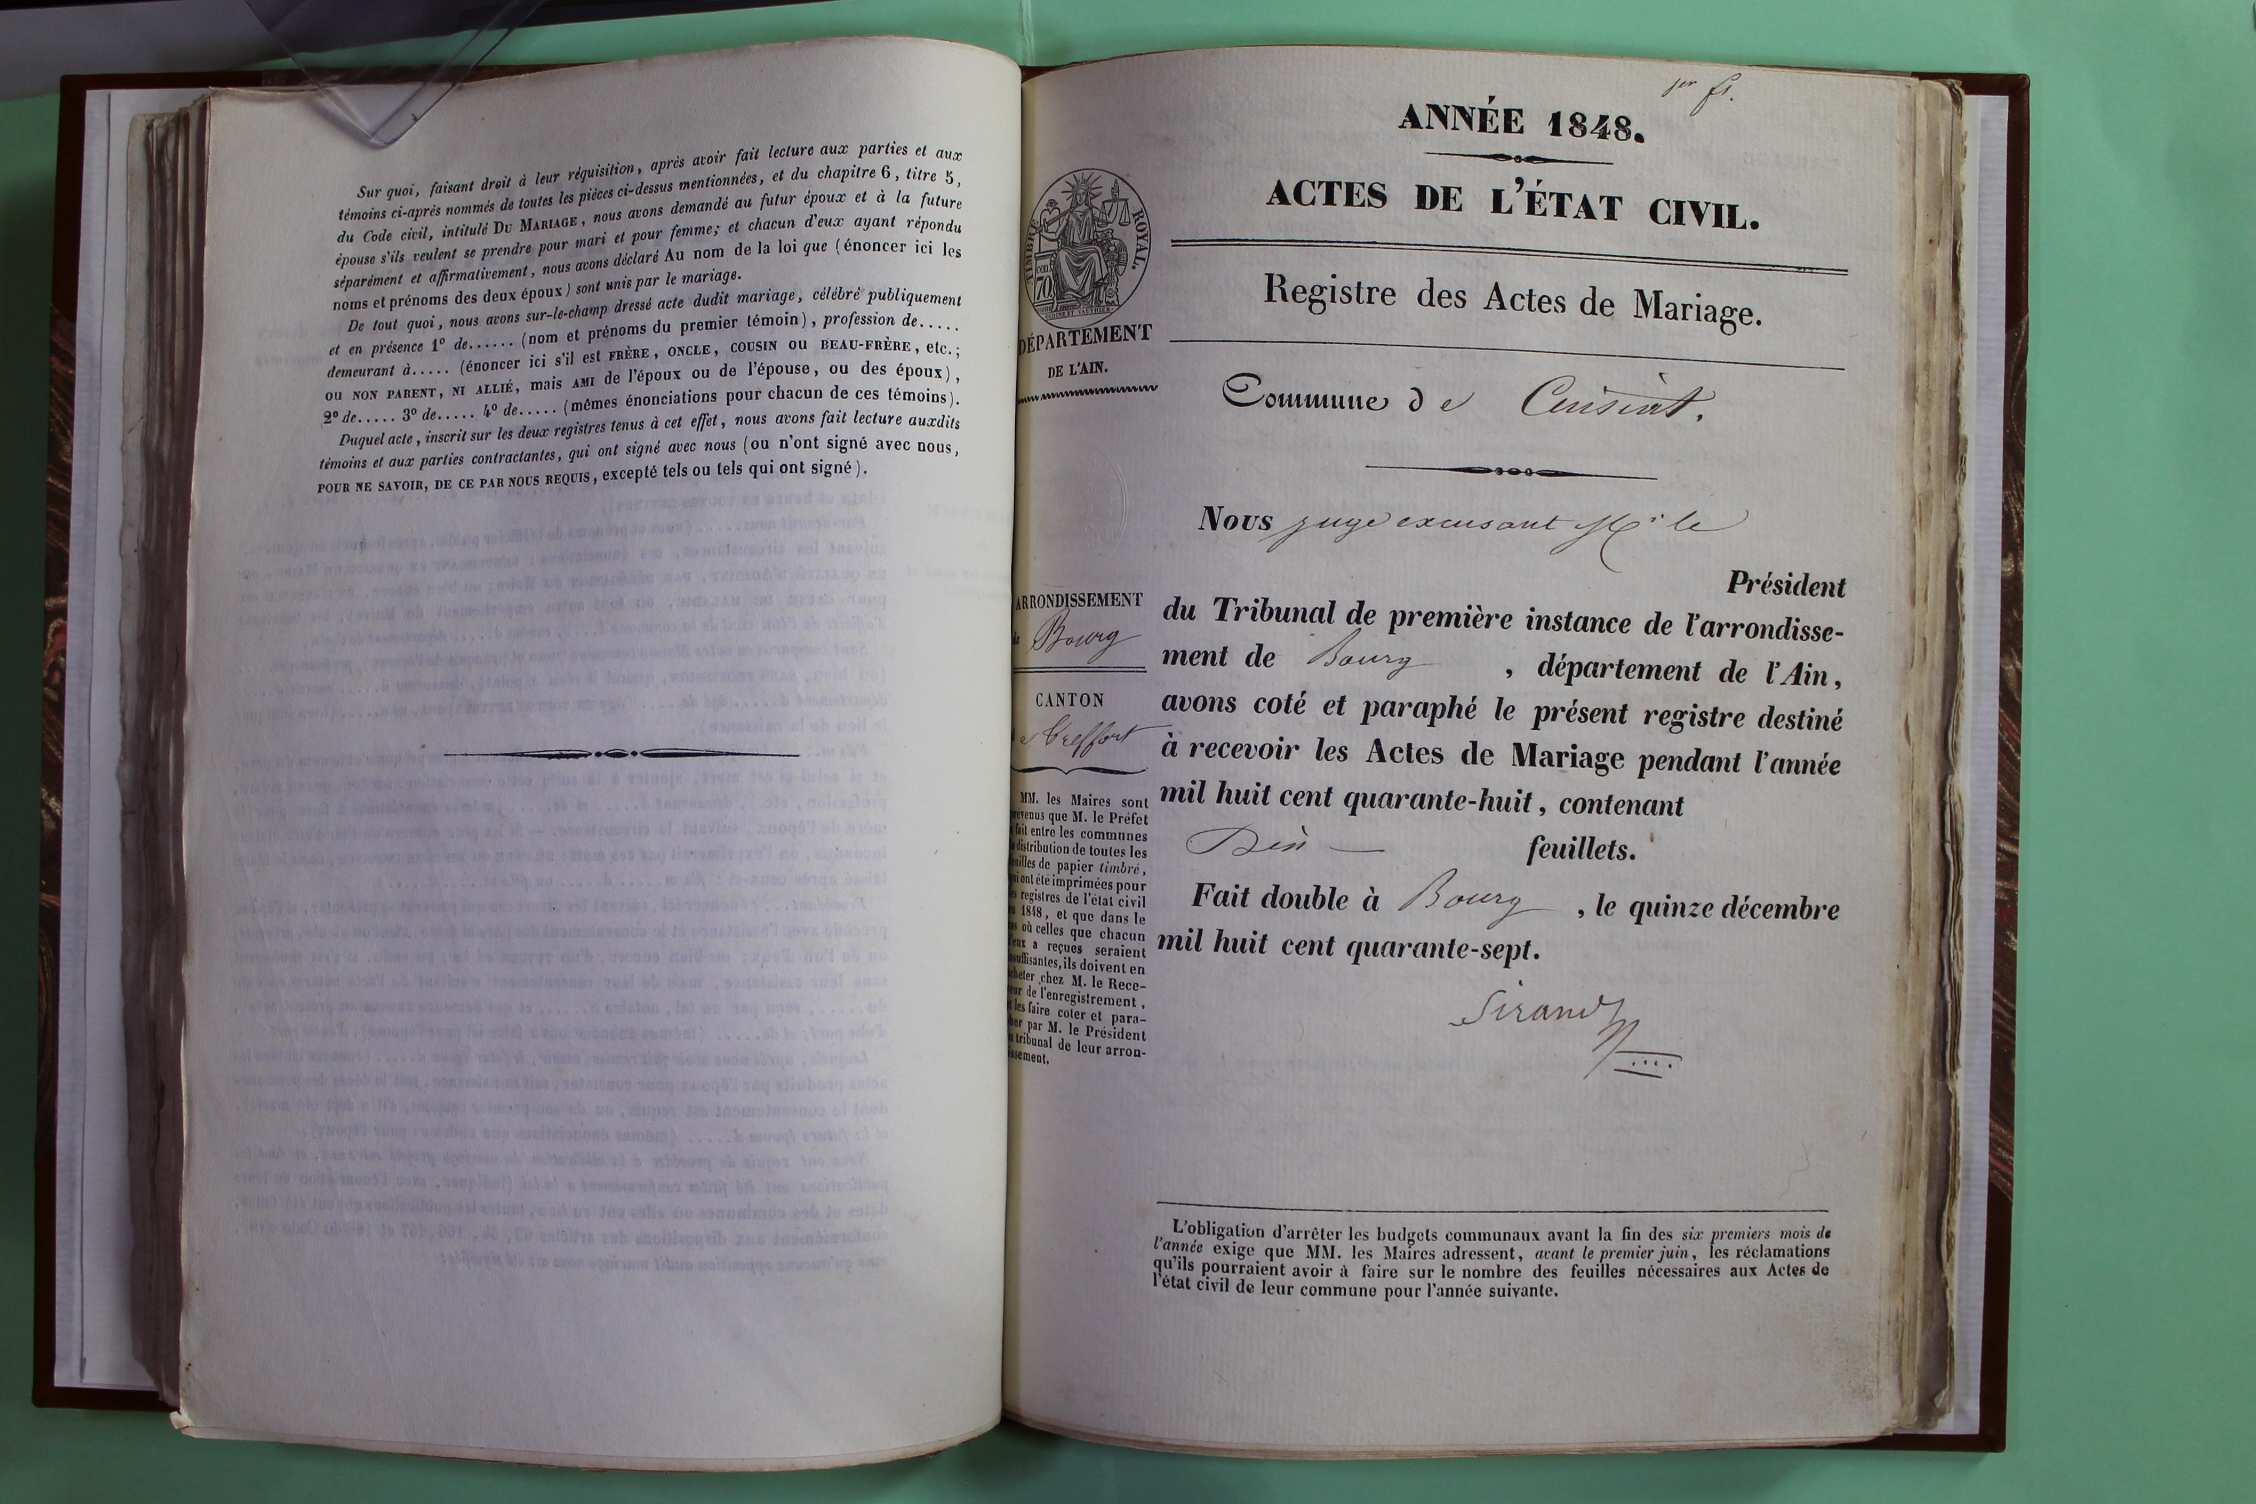 Sur quoi, faisant droit à leur réquisition, après avoir fait lecture aux parties et aux
témoins ci-après nommés de toutes les pièces ci-dessus mentionnées, et du chapitre 6, titre 5,
du Code civil, intitulé DU MARIAGE, nous avons demandé au futur époux et à la future
épouse s'ils veulent se prendre pour mari et pour femme; et chacun d'eux ayant répondu
séparément et affirmativement, nous avons déclaré Au nom de la loi que (énoncer ici les
noms et prénoms des deux époux) sont unis par le mariage.
De tout quoi, nous avons sur-le-champ dressé acte dudit mariage, célébré publiquement
et en présence 1º de...... (nom et prénoms du premier témoin), profession de.....
demeurant à..... (énoncer ici s'il est FRÈRE, ONCLE, COUSIN OU BEAU-FRÈRE, etc.;
OU NON PARENT, NI ALLIÉ, mais AMI de l'époux ou de l'épouse, ou des époux),
2º de..... 3º de..... 4º de..... (mêmes énonciations pour chacun de ces témoins).
Duquel acte, inscrit sur les deux registres tenus à cet effet, nous avons fait lecture auxdits
témoins et aux parties contractantes, qui ont signé avec nous (ou n'ont signé avec nous,
POUR NE SAVOIR, DE CE PAR NOUS REQUIS, excepté tels ou tels qui ont signé).
1er ft.
ANNÉE 1848.
ACTES DE L'ÉTAT CIVIL.
TIMBRE ROYAL.
70
Registre des Actes de Mariage.
DÉPARTEMENT
DE L'AIN.
Commune de Cuisiat.
Nous juge excusant Mr le
Président
du Tribunal de première instance de l'arrondisse-
ment de Bourg, département de l'Ain,
avons coté et paraphé le présent registre destiné
à recevoir les Actes de Mariage pendant l'année
mil huit cent quarante-huit, contenant
Dix — feuillets.
Fait double à Bourg, le quinze décembre
mil huit cent quarante-sept.
Sirand
ARRONDISSEMENT
de Bourg
CANTON
de Treffort
MM. les Maires sont
prévenus que M. le Préfet
a fait entre les communes
la distribution de toutes les
feuilles de papier timbré,
qui ont été imprimées pour
les registres de l'état civil
en 1848, et que dans le
cas où celles que chacun
d'eux a reçues seraient
insuffisantes, ils doivent en
acheter chez M. le Rece-
veur de l'enregistrement,
et les faire coter et para-
pher par M. le Président
du tribunal de leur arron-
dissement.
L'obligation d'arrêter les budgets communaux avant la fin des six premiers mois de
l'année exige que MM. les Maires adressent, avant le premier juin, les réclamations
qu'ils pourraient avoir à faire sur le nombre des feuilles nécessaires aux Actes de
l'état civil de leur commune pour l'année suivante.